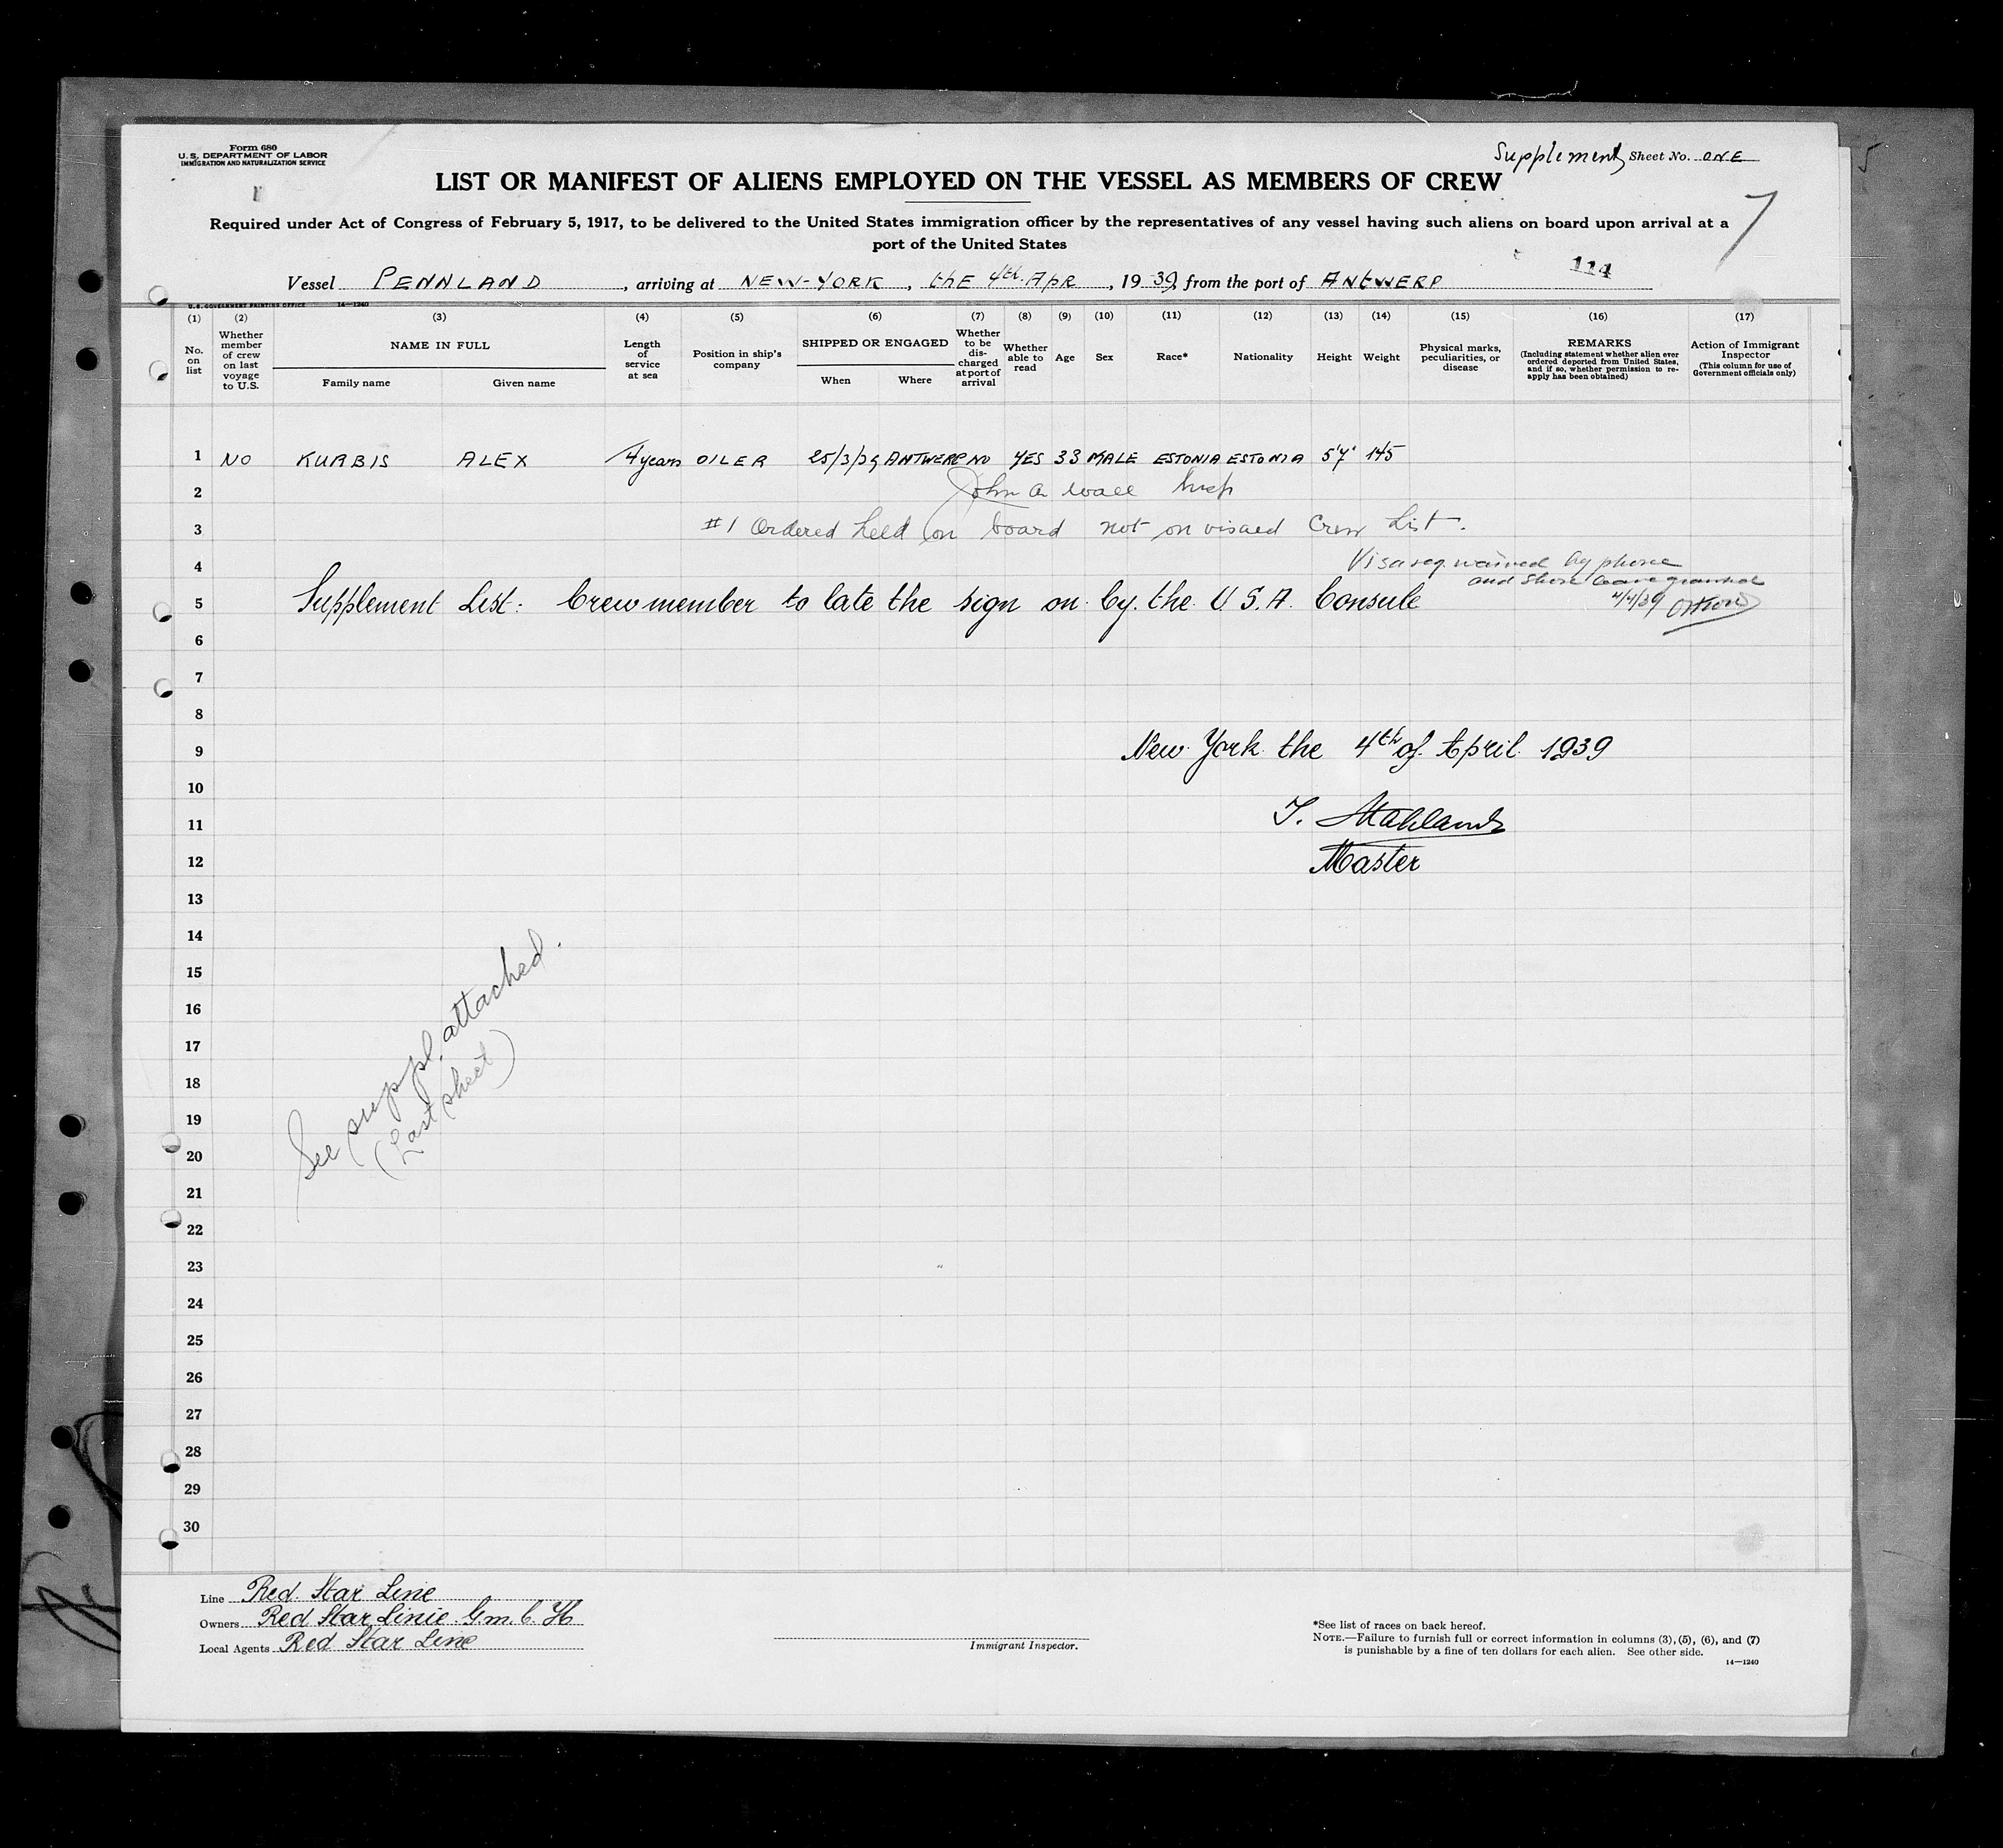 Form 680
U. S. DEPARTMENT OF LABOR
IMMIGRATION AND NATURALIZATION SERVICE
Supplement Sheet No. ONE
5
LIST OR MANIFEST OF ALIENS EMPLOYED ON THE VESSEL AS MEMBERS OF CREW
7
Required under Act of Congress of February 5, 1917, to be delivered to the United States immigration officer by the representatives of any vessel having such aliens on board upon arrival at a
port of the United States
114
Vessel PENNLAND, arriving at NEW-YORK, thE 4th APR, 1939, from the port of ANTWERP
U. S. GOVERNMENT PRINTING OFFICE 14—1240
(1) (2) (3) (4) (5) (6) (7) (8) (9) (10) (11) (12) (13) (14) (15) (16) (17)
No. on list
Whether member of crew on last voyage to U.S.
NAME IN FULL
Family name Given name
Length of service at sea
Position in ship's company
SHIPPED OR ENGAGED
When Where
Whether to be discharged at port of arrival
Whether able to read
Age
Sex
Race*
Nationality
Height
Weight
Physical marks, peculiarities, or disease
REMARKS
(Including statement whether alien ever ordered deported from United States, and if so, whether permission to re-apply has been obtained)
Action of Immigrant Inspector
(This column for use of Government officials only)
1 NO KURBIS ALEX 4 years OILER 25/3/39 ANTWERP NO YES 33 MALE ESTONIA ESTONIA 5'7" 145
2 John A Wall Insp
3 #1 Ordered held on board not on visaed Crew List.
4 Visa req. waived by phone
and shore leave granted
5 Supplement List: Crewmember to late the sign on by the U.S.A. Consule
4/4/39
6
7
8
9 New York the 4th of April 1939
10
11
12 Master
13
14
15
16
17
18
19
20
21
22
23
24
25
26
27
28
29
30
See suppl. attached.
(Last sheet)
Line Red Star Line
Owners Red Star Linie G.m.b.H
Local Agents Red Star Line
Immigrant Inspector.
*See list of races on back hereof.
NOTE.—Failure to furnish full or correct information in columns (3), (5), (6), and (7)
is punishable by a fine of ten dollars for each alien. See other side.
14—1240